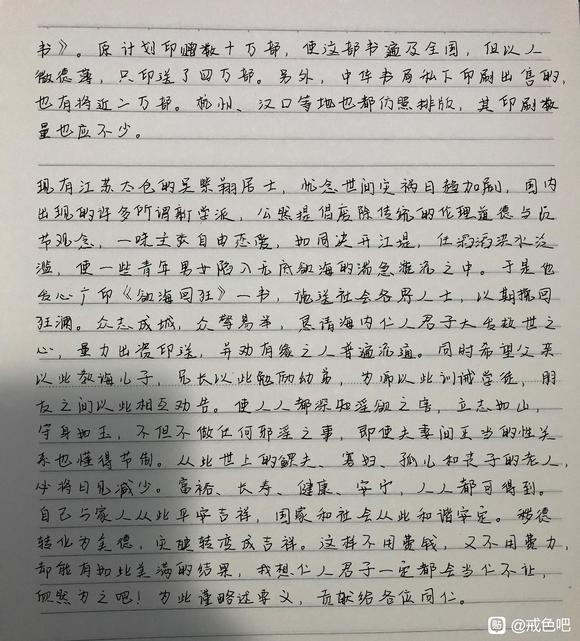 书》。原计划印赠数十万部，使这部书遍及全国，但以人
微德薄，只印送了四万部。另外，中华书局私下印刷出售的，
也有将近二万部。杭州、汉口等地也都仿照排版，其印刷数
量也应不少。
现有江苏太仓的吴紫翔居士，忧念世间灾祸日趋加剧，国内
出现的许多所谓新学派，公然提倡废除传统的伦理道德与贞
节观念，一味主张自由恋爱，如同决开江堤，任滔滔洪水泛
滥，使一些青年男女陷入无底欲海的湍急漩流之中。于是他
发心广印《欲海回狂》一书，施送社会各界人士，以期挽回
狂澜。众志成城，众擎易举，恳请海内仁人君子大发救世之
心，量力出资印送，并劝有缘之人普遍流通。同时希望父亲
以此教诲儿子，兄长以此勉励幼弟，为师以此训诫学徒，朋
友之间以此相互劝告。使人人都深知淫欲之害，立志如山，
守身如玉，不但不做任何邪淫之事，即使夫妻间正当的性关
系也懂得节制。从此世上的鳏夫、寡妇、孤儿和丧子的老人，
必将日见减少。富裕、长寿、健康、安宁，人人都可得到。
自己与家人从此平安吉祥，国家和社会从此和谐安定。秽德
转化为美德，灾殃转变成吉祥。这样不用费钱，又不用费力，
却能有如此美满的结果，我想仁人君子一定都会当仁不让，
忻然为之吧！为此谨略述要义，贡献给各位同仁。
贴 @戒色吧